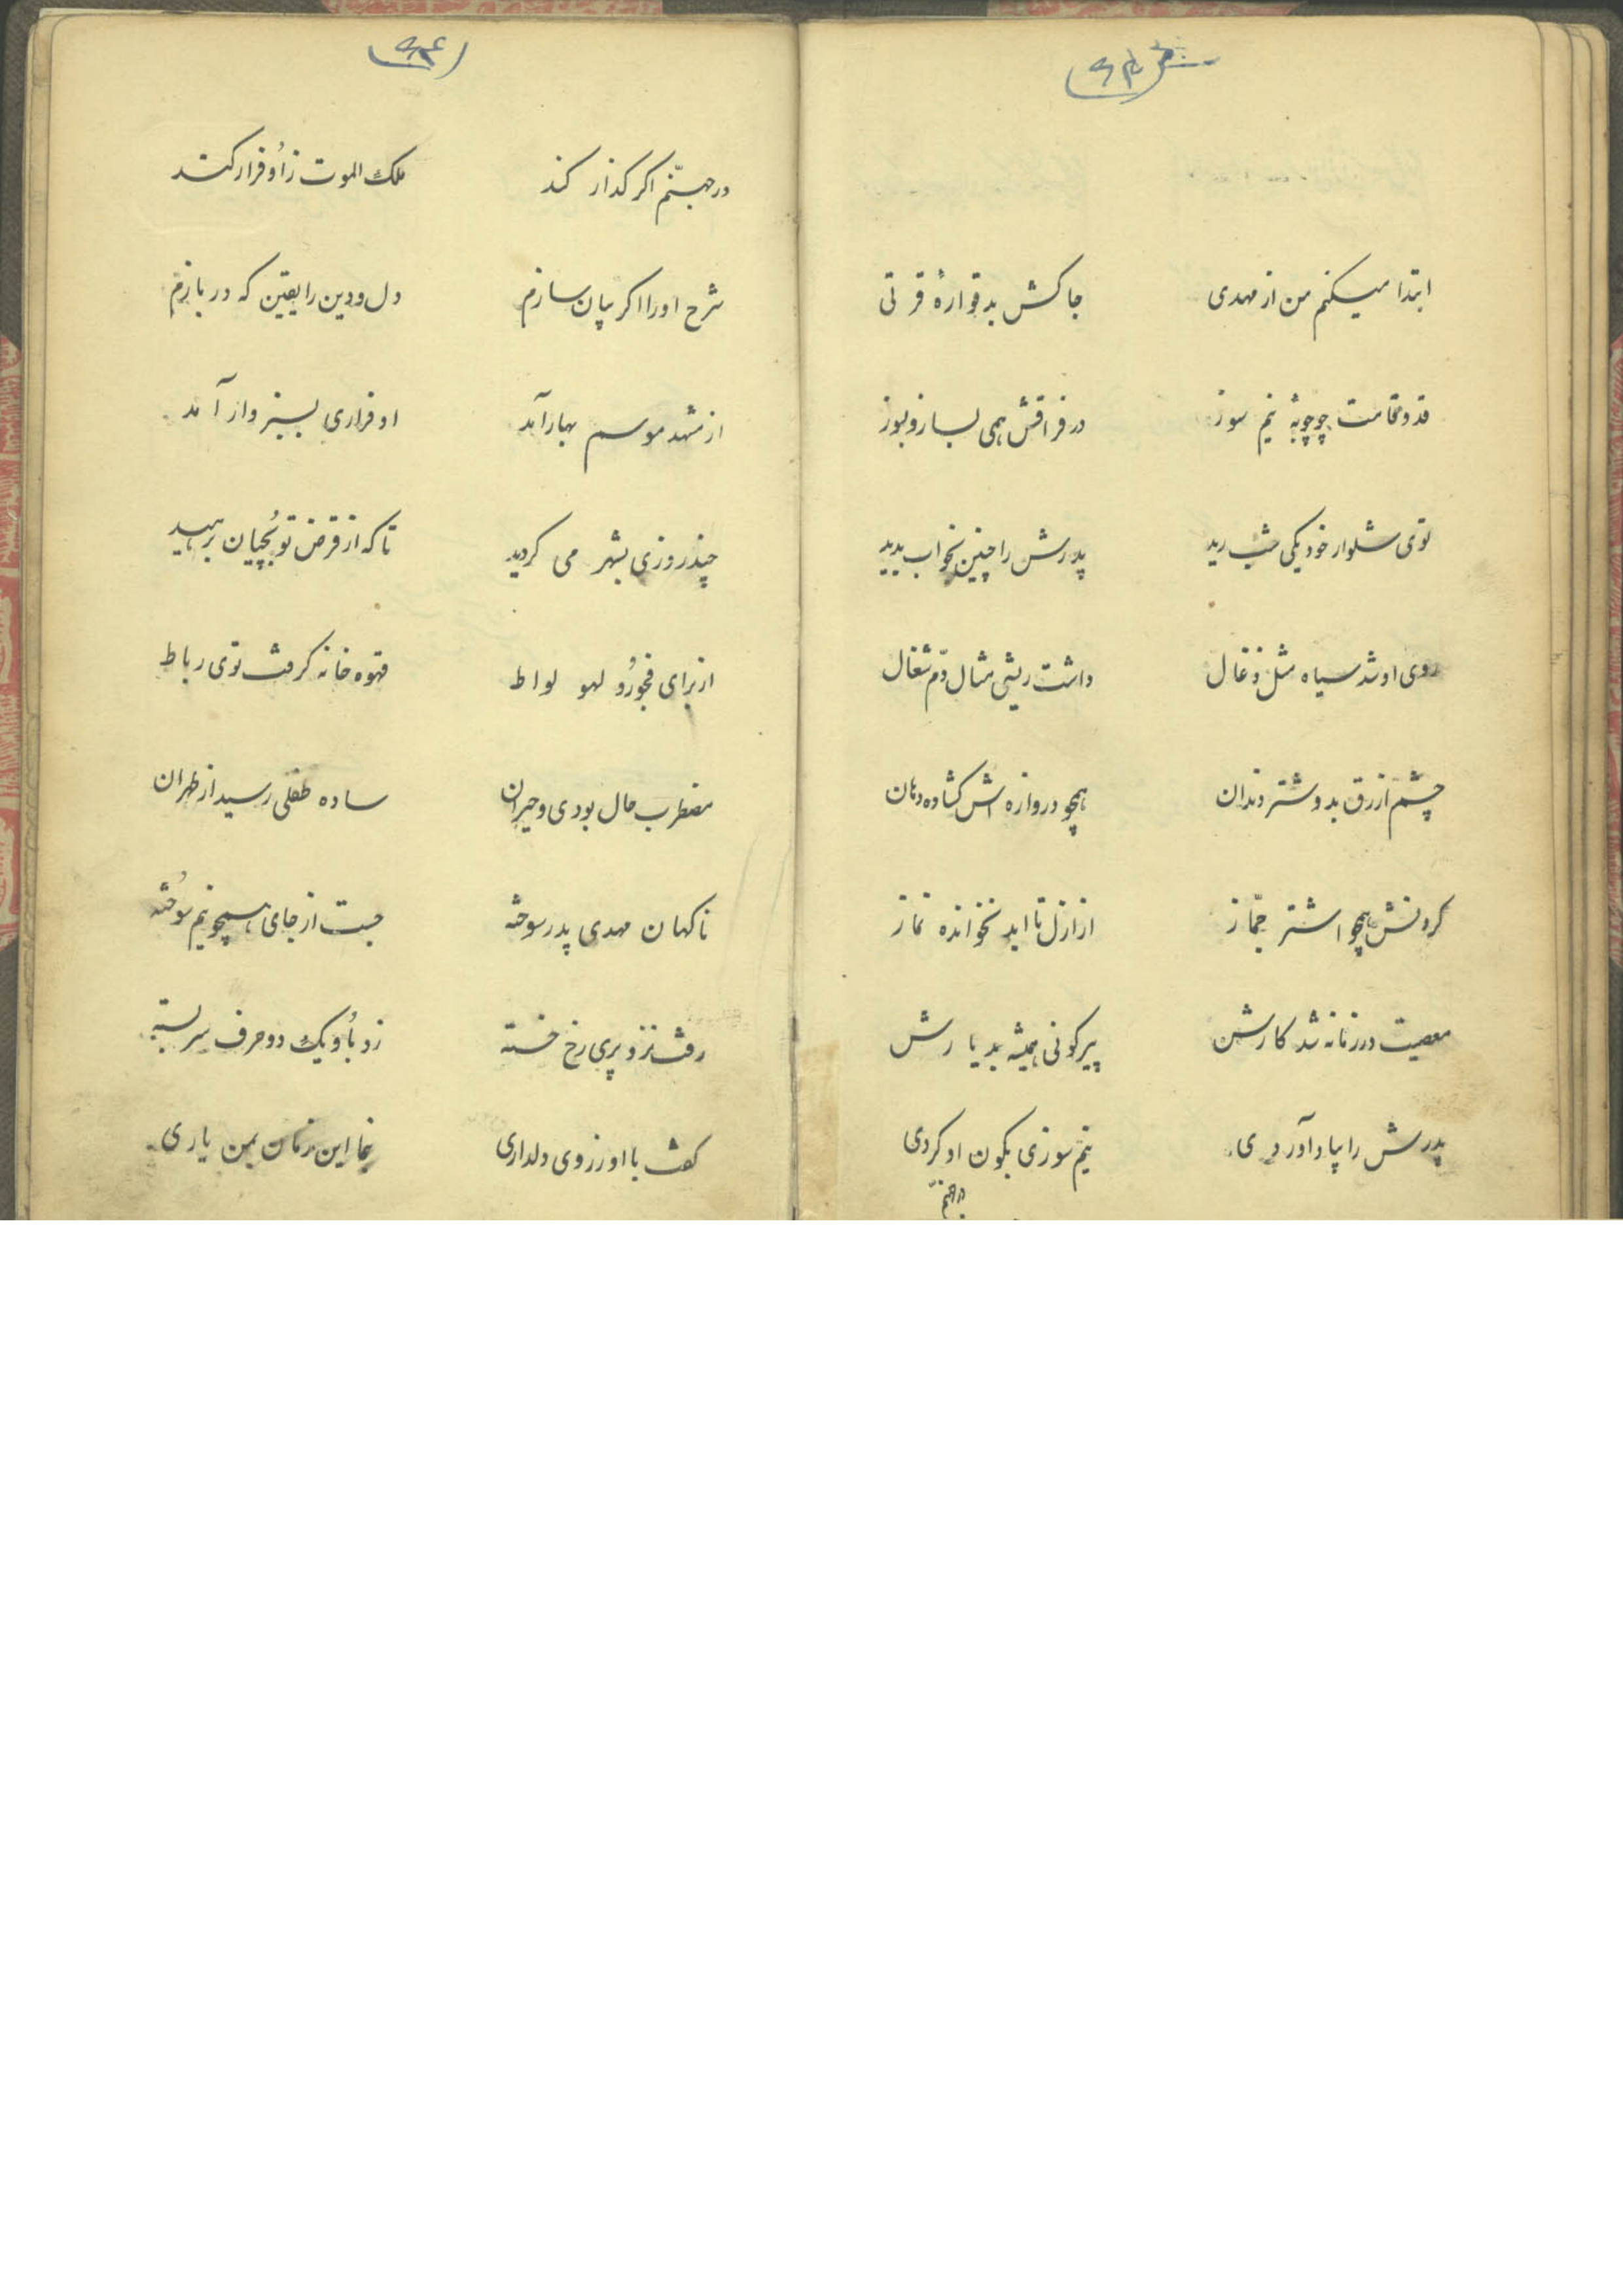 ابتدا میکنم من از مهدی جاکش بد قوارهٔ قرتی
قد و قامت چوچوبهٔ نیم سوز در فراقش همی بساز و بسوز
توی شلوار خود یکی شب رید پدرش را چنین بخواب بدید
روی او شد سیاه مثل ذغال داشت ریشی مثال دّم شغال
چشم ازرق بد و شتر دندان همچو دروازه اش گشاده دهان
گردنش همچو اشتر جمّاز از ازل تا ابد نخوانده نماز
معصیت در زمانه شد کارش پیر کونی همیشه بد یارش
پدرش را بیاد آوردی نیم سوزی بکون او کردی
در جهنّم
در جهنّم اگر گذار کند ملک الموت ز اُو فرار کند
شرح او را اگر بیان سازم دل و دین را یقین که در بازم
از مشهد موسم بهار آمد او فراری بسبزوار آمد
چند روزی بشهر می گردید تا که از قرض توپچیان برهید
از برای فجورُ و لهو لواط قهوه خانه گرفت توی رباط
مضطرب حال بودی و حیران ساده طفلی رسید از طهران
ناگهان مهدی پدر سوخته جست از جای همچو نیم سوُخته
رفت نزد پری رخ خسته زد باُو یک دو حرف سر بسته
گفت با او ز روی دلداری بنما این زمان بمن یاری